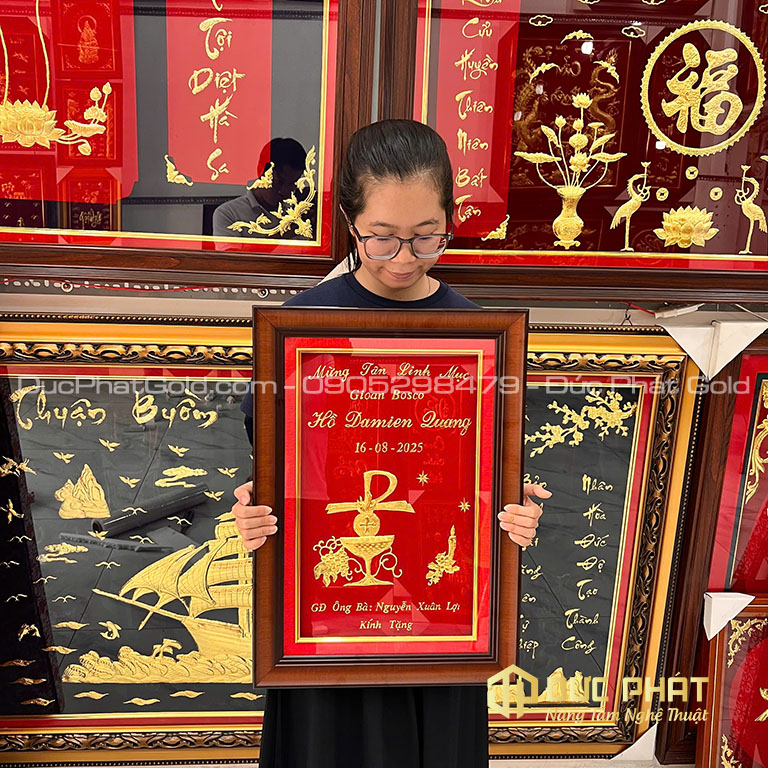 Tội
Diệt
Hà
Sa
Cửu
Huyền
Thiên
Niên
Bất
Tận
福
DucPhatGold.com - 0905298479 - Đức Phát Gold
Thuận Buồm
Mừng Tân Linh Mục
Gioan Bosco
Hồ Damien Quang
16-08-2025
GĐ Ông Bà: Nguyễn Xuân Lợi
Kính Tặng
Nhân
Hòa
Đức
Độ
Tạo
Thành
Công
ĐỨC PHÁT
Nâng Tầm Nghệ Thuật